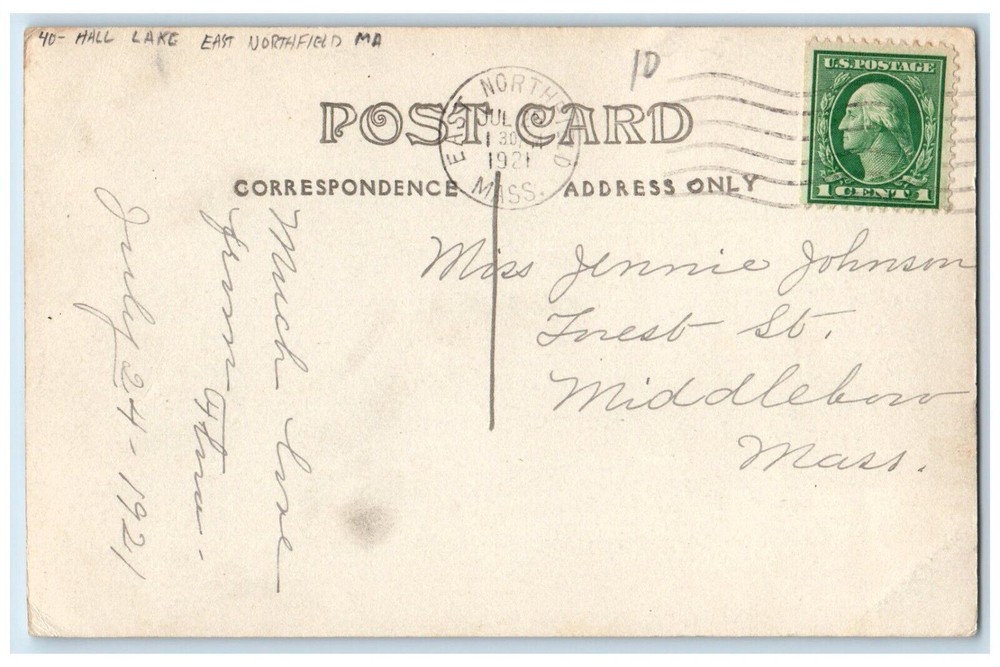 40- HALL LAKE EAST NORTHFIELD MA
10
POST CARD
EAST NORTHFIELD
JUL
1 30
1921
MASS.
U.S. POSTAGE
1 CENT 1
CORRESPONDENCE
ADDRESS ONLY
Miss Jennie Johnson
Forest St.
Middleboro
Mass.
Much love
from
July 24-1921